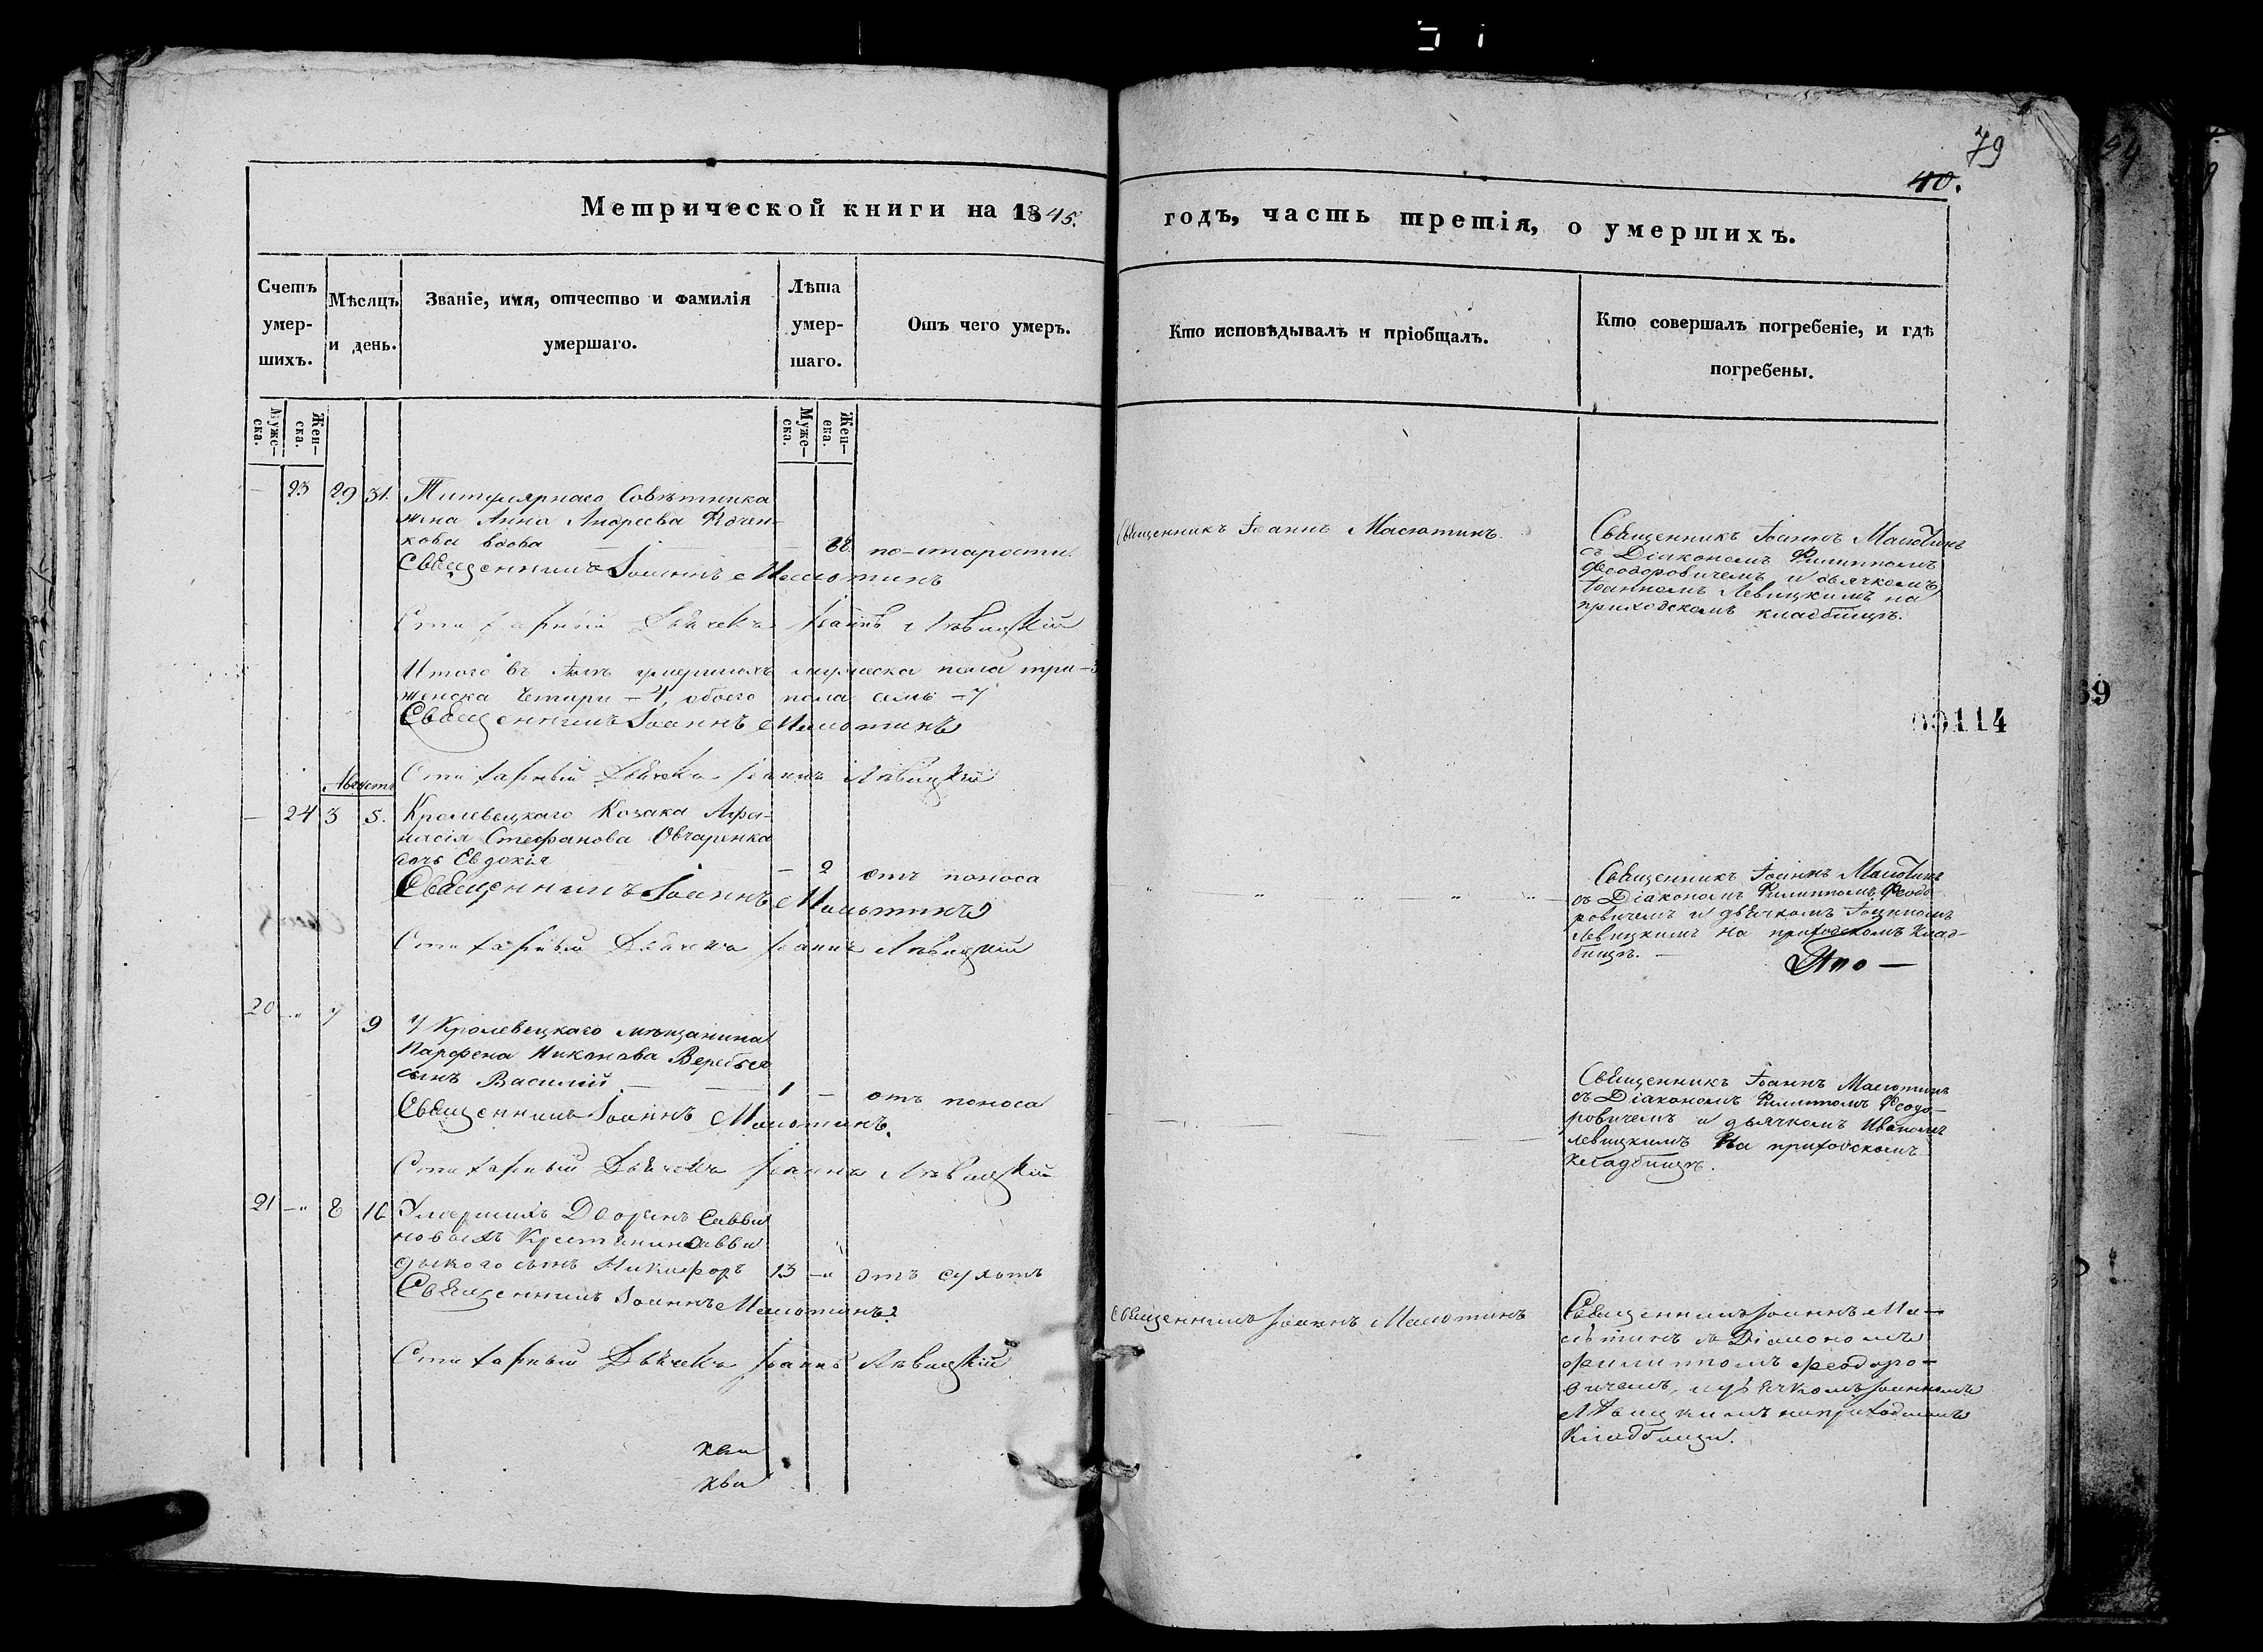 79
40.
Метрической книги на 1845. годъ, часть третія, о умершихъ.
Счетъ умер-шихъ.
Мѣсяцъ и день.
Званіе, имя, отчество и фамилія умершаго.
Лѣта умер-шаго.
Отъ чего умеръ.
Кто исповѣдывалъ и пріобщалъ.
Кто совершалъ погребеніе, и гдѣ погребены.
Муже-ска.
Жен-ска.
Муже-ска.
Жен-ска.
— 23 29 31. Титулярнаго Совѣтника
жена Анна Андреева
кова вдова — 88. по-старости.
Священникъ Іоаннъ Масютинъ
Стихарный Дьячекъ Іоаннъ Лѣвицкій
Священникъ Іоаннъ Масютинъ.
Священникъ Іоаннъ Масютинъ
съ Діакономъ Филиппомъ
Феодоровичемъ и дьячкомъ
Іоанномъ Левицкимъ на
приходскомъ кладбищѣ.
Итого въ умершихъ мужеска пола три-3
женска Четыри-4, обоего пола семь-7
Священникъ Іоаннъ Масютинъ
Стихарный Дьячекъ Іоаннъ Лѣвицкій
00114
Августъ
— 24 3 5. Кролевецкаго Козака Афа-
насія Стефанова Овчаренка
дочь Евдокія — 2 отъ поноса
Священникъ Іоаннъ Масютинъ
Стихарный Дьячекъ Іоаннъ Лѣвицкій
Священникъ Іоаннъ Масютинъ
съ Діакономъ Филиппомъ Феодо-
ровичемъ и дьячкомъ Іоанномъ
Левицкимъ на приходскомъ клад-
бищѣ. —
20 -„ 7 9 Кролевецкаго мѣщанина
Парфена Никонова Веребья
сынъ Василій — 1 — отъ поноса
Священникъ Іоаннъ Масютинъ.
Стихарный Дьячекъ Іоаннъ Лѣвицкій
Священникъ Іоаннъ Масютинъ
съ Діакономъ Филиппомъ Феодо-
ровичемъ и дьячкомъ Иваномъ
Левицкимъ на приходскомъ
кладбищѣ.
21 -„ 8 10 Умершихъ Дворянъ Савви
новыхъ Крестьянина Савви
сынъ Никифоръ 13 -„ отъ сухотъ
Священникъ Іоаннъ Масютинъ
Стихарный Дьячекъ Іоаннъ Лѣвицкій
Священникъ Іоаннъ Масютинъ
Священникъ Іоаннъ Ма-
сютинъ съ Діакономъ
Филиппомъ Феодоро-
вичемъ, и дьячкомъ Іоанномъ
Лѣвицкимъ на приходскомъ
Кладбищи.